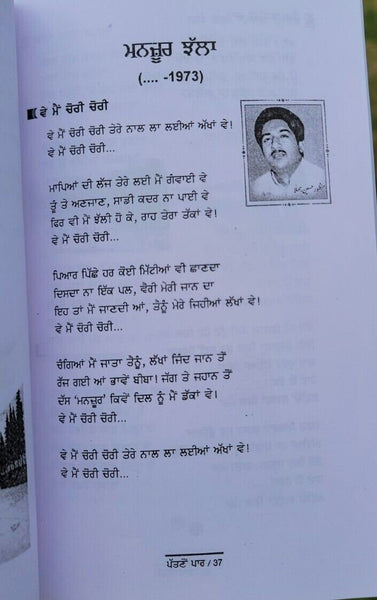 ਮਨਜ਼ੂਰ ਝੱਲਾ
(.... -1973)
ਵੇ ਮੈਂ ਚੋਰੀ ਚੋਰੀ
ਵੇ ਮੈਂ ਚੋਰੀ ਚੋਰੀ ਤੇਰੇ ਨਾਲ ਲਾ ਲਈਆਂ ਅੱਖਾਂ ਵੇ!
ਵੇ ਮੈਂ ਚੋਰੀ ਚੋਰੀ...
ਮਾਪਿਆਂ ਦੀ ਲੱਜ ਤੇਰੇ ਲਈ ਮੈਂ ਗੰਵਾਈ ਵੇ
ਤੂੰ ਤੇ ਅਣਜਾਣ, ਸਾਡੀ ਕਦਰ ਨਾ ਪਾਈ ਵੇ
ਫਿਰ ਵੀ ਮੈਂ ਝੱਲੀ ਹੋ ਕੇ, ਰਾਹ ਤੇਰਾ ਤੱਕਾਂ ਵੇ!
ਵੇ ਮੈਂ ਚੋਰੀ ਚੋਰੀ...
ਪਿਆਰ ਪਿੱਛੇ ਹਰ ਕੋਈ ਮਿੱਟੀਆਂ ਵੀ ਛਾਣਦਾ
ਦਿਸਦਾ ਨਾ ਇੱਕ ਪਲ, ਵੈਰੀ ਮੇਰੀ ਜਾਨ ਦਾ
ਇਹ ਤਾਂ ਮੈਂ ਜਾਣਦੀ ਆਂ, ਤੈਨੂੰ ਮੇਰੇ ਜਿਹੀਆਂ ਲੱਖਾਂ ਵੇ!
ਵੇ ਮੈਂ ਚੋਰੀ ਚੋਰੀ...
ਚੰਗਿਆਂ ਮੈਂ ਜਾਤਾ ਤੈਨੂੰ, ਲੱਖਾਂ ਜਿੰਦ ਜਾਨ ਤੋਂ
ਰੱਜ ਗਈ ਆਂ ਭਾਵੇਂ ਬੀਬਾ! ਜੱਗ ਤੇ ਜਹਾਨ ਤੋਂ
ਦੱਸ 'ਮਨਜ਼ੂਰ' ਕਿਵੇਂ ਦਿਲ ਨੂੰ ਮੈਂ ਡੱਕਾਂ ਵੇ।
ਵੇ ਮੈਂ ਚੋਰੀ ਚੋਰੀ...
ਵੇ ਮੈਂ ਚੋਰੀ ਚੋਰੀ ਤੇਰੇ ਨਾਲ ਲਾ ਲਈਆਂ ਅੱਖਾਂ ਵੇ!
ਵੇ ਮੈਂ ਚੋਰੀ ਚੋਰੀ...
ਪੱਤਣੋਂ ਪਾਰ / 37